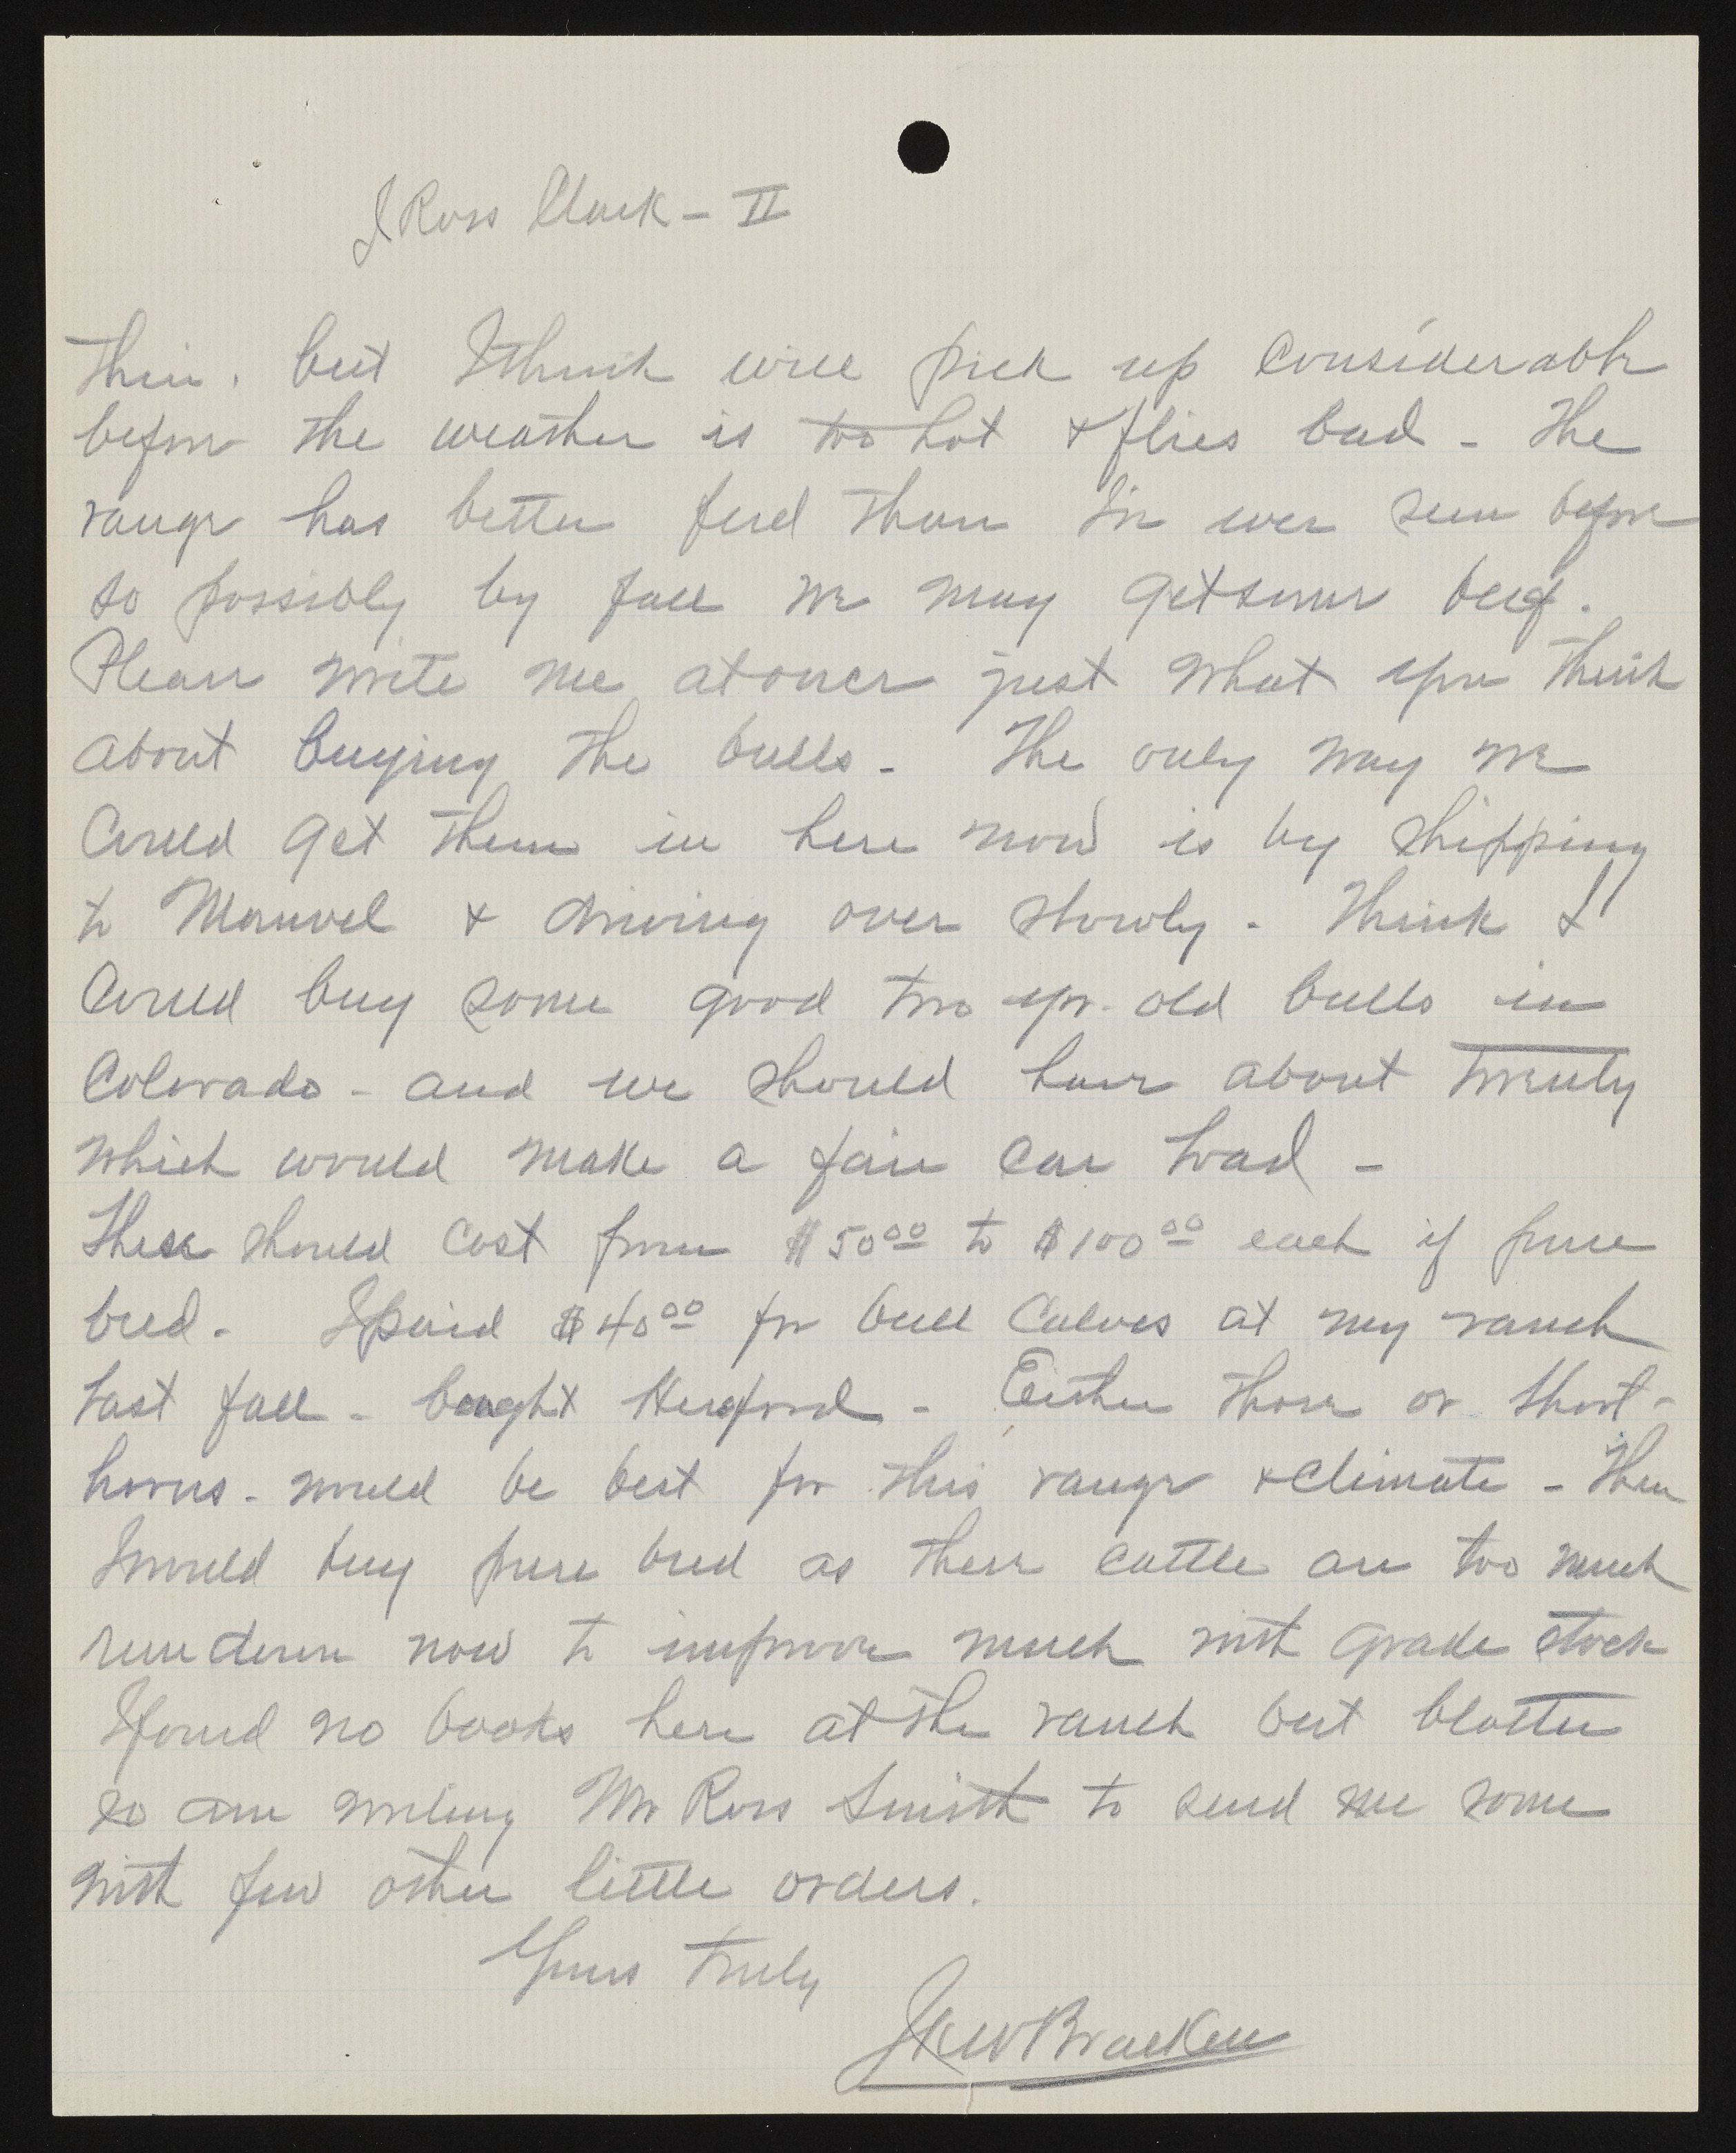 J Ross Clark - II
thin. but I think will pick up considerable
before the weather is too hot & flies bad - The
range has better feed than I've ever seen before
so possibly by fall we may get some beef.
Please write me at once just what you think
about buying the bulls - The only way we
could get them in here now is by shipping
to Manvel & driving over slowly - Think I
could buy some good two yr. old bulls in
Colorado - and we should have about twenty
which would make a fair car load -
These should cost from $50.00 to $100.00 each if pure
bred - I paid $40.00 for bull calves at my ranch
last fall - bought Hereford - Either those or Short-
horns - would be best for this range & climate - Then
I would buy pure bred as these cattle are too much
run down now to improve much with grade stock
I found no books here at the ranch but blotter
so am writing Mr Ross Smith to send me some
with few other little orders.
Yours truly
Bracken